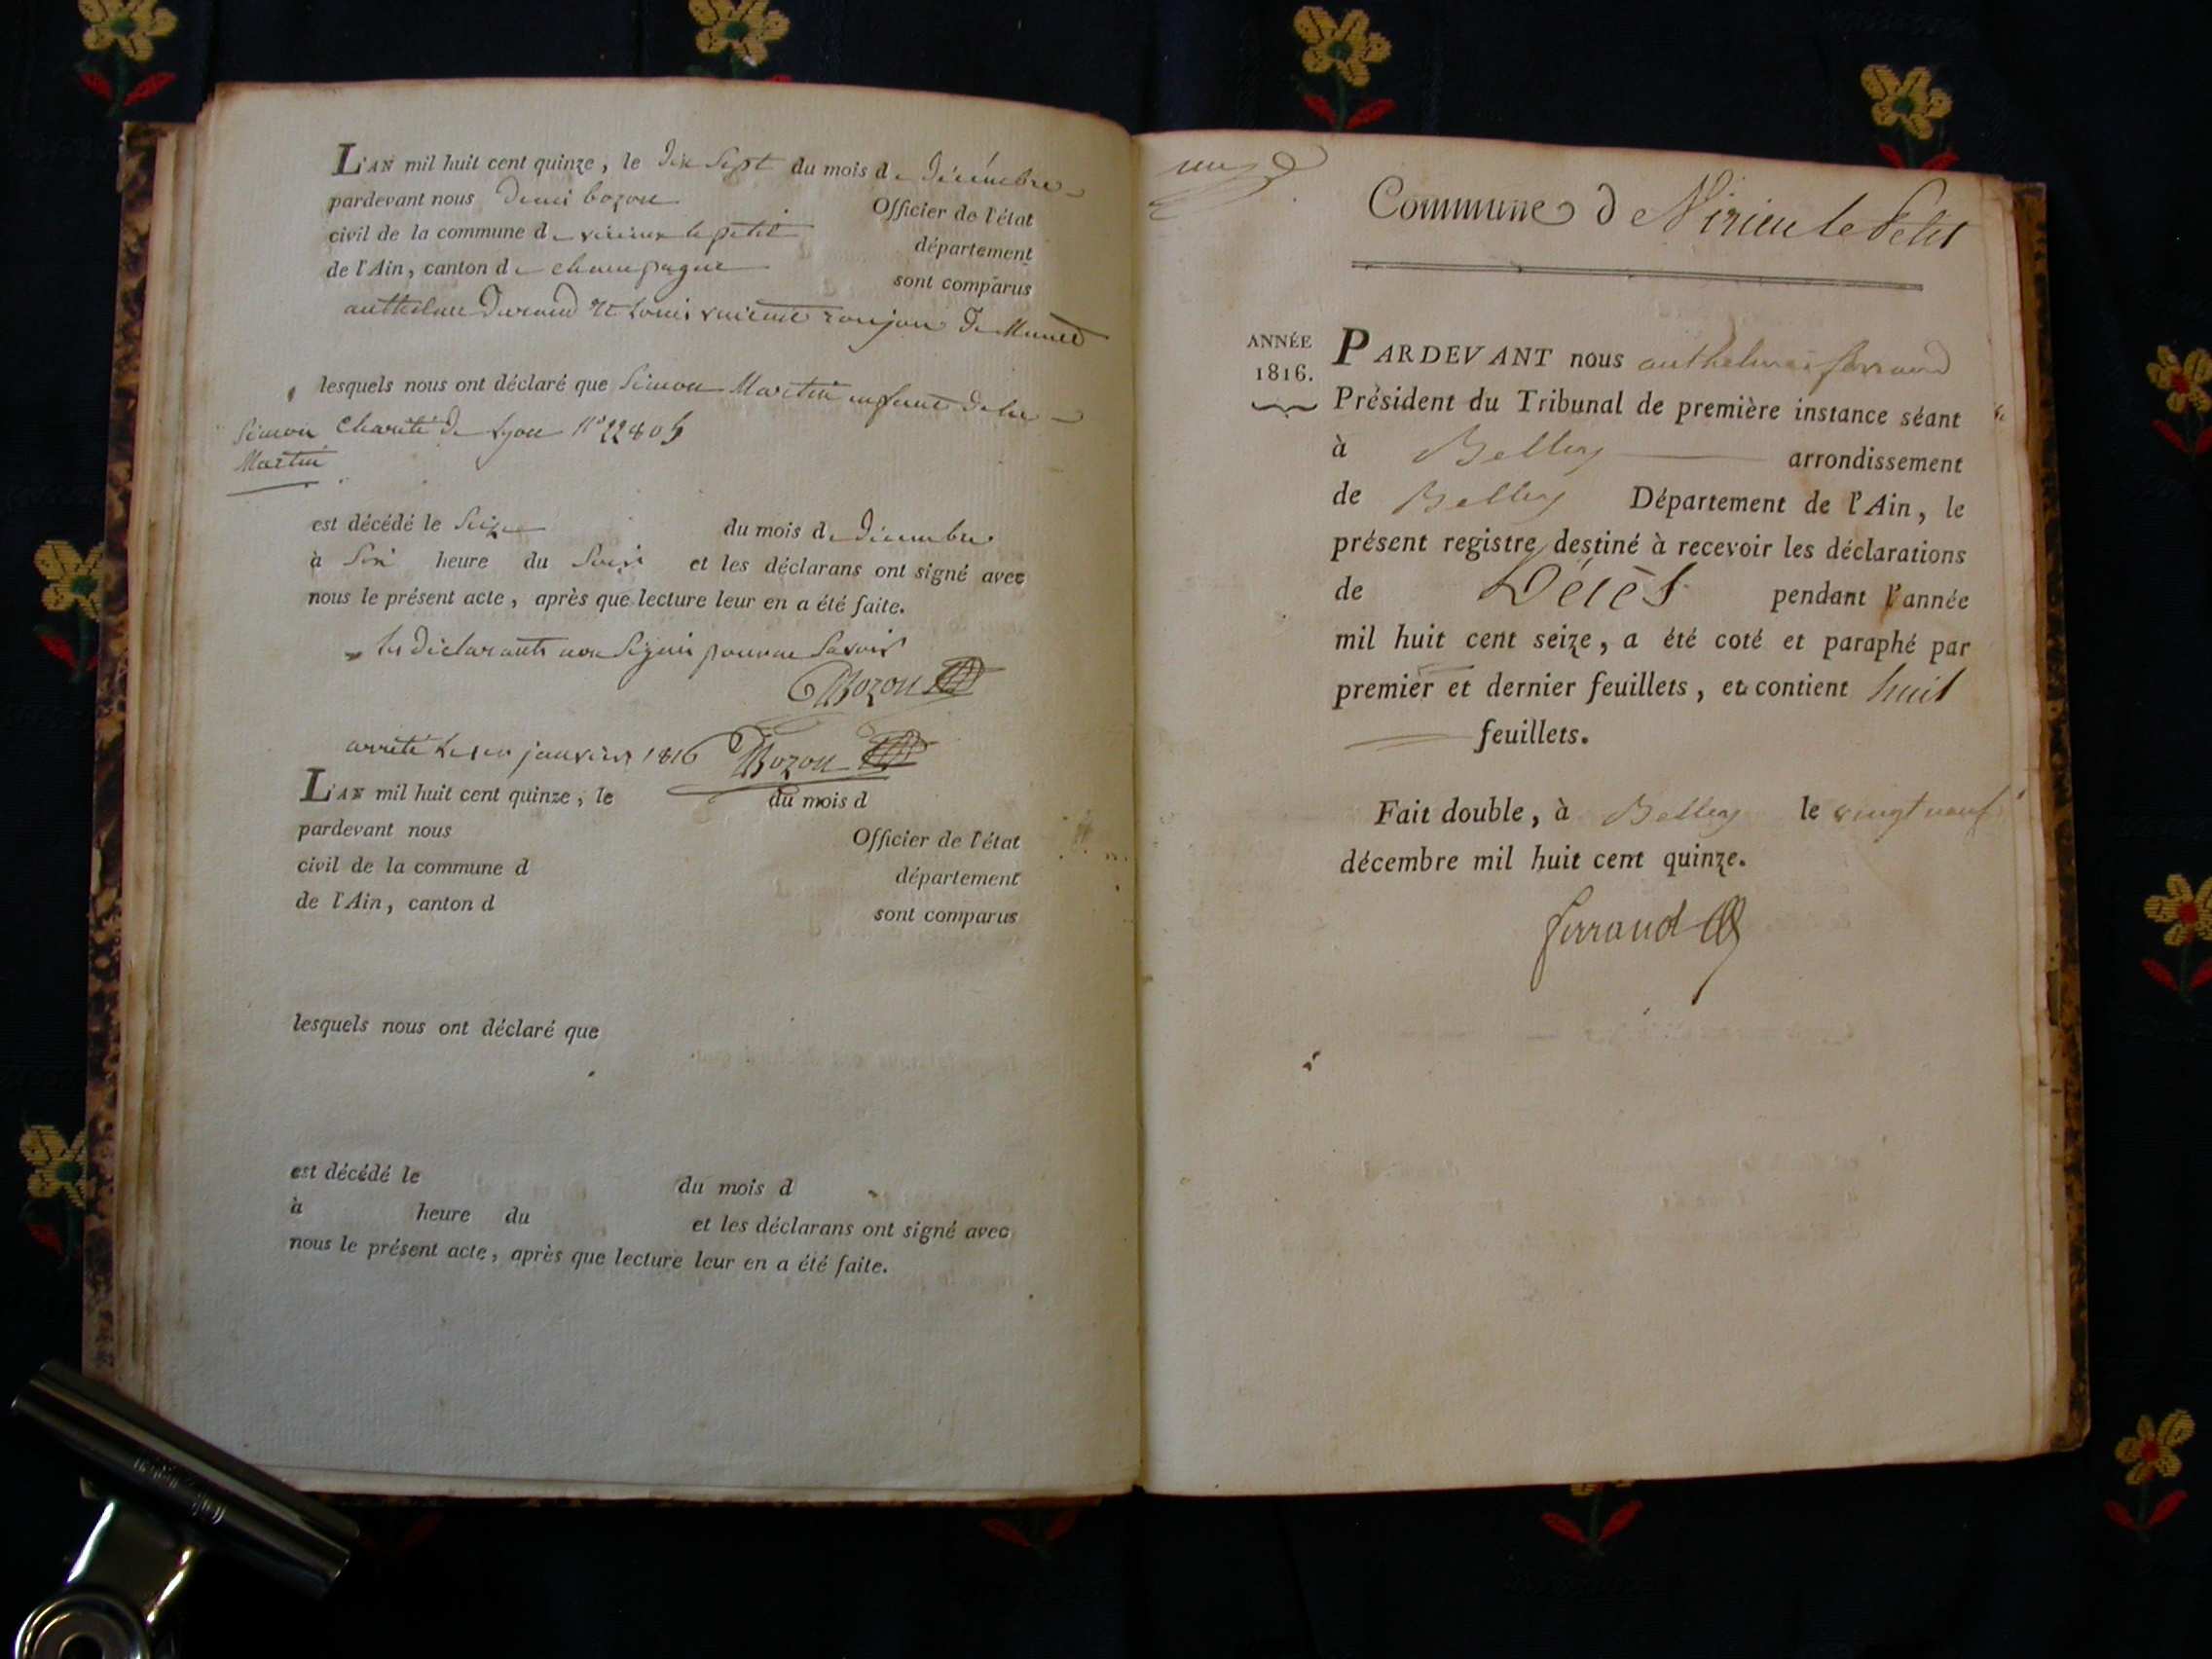 L'AN mil huit cent quinze, le dix sept du mois de décembre
pardevant nous bozon Officier de l'état
civil de la commune de virieux le petit département
de l'Ain, canton de champagne sont comparus
anthelme Durand et Louis de Munet
lesquels nous ont déclaré que Simon Martin enfant de la
Simon
Martin
Charité de Lyon N° 22805
est décédé le Seize du mois de décembre
à Six heure du Soir et les déclarans ont signé avec
nous le présent acte, après que lecture leur en a été faite.
les déclarants non Signé pour ne Savoir
Bozon
arreté Le 1er janvier 1816 Bozon
L'AN mil huit cent quinze, le du mois d
pardevant nous Officier de l'état
civil de la commune d département
de l'Ain, canton d sont comparus
lesquels nous ont déclaré que
est décédé le du mois d
à heure du et les déclarans ont signé avec
nous le présent acte, après que lecture leur en a été faite.
Commune de Virieu le Petit
ANNÉE
1816.
PARDEVANT nous anthelme ferrand
Président du Tribunal de première instance séant
à Belley arrondissement
de Belley Département de l'Ain, le
présent registre destiné à recevoir les déclarations
de Décès pendant l'année
mil huit cent seize, a été coté et paraphé par
premier et dernier feuillets, et contient huit
feuillets.
Fait double, à Belley le vingt neuf
décembre mil huit cent quinze.
ferrand